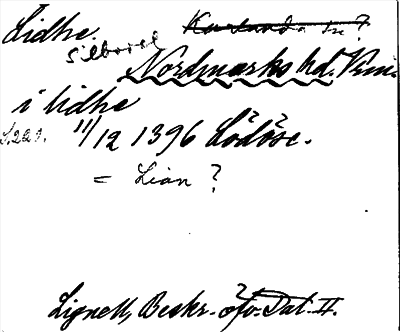 Lidhe. Karlanda sn?
Silbodal
Nordmarks hd. Vrml.
i lidhe
S.229. 11/12 1396 Lödöse.
= Lian ?
Lignell, Beskr. öfv. Dal. II.